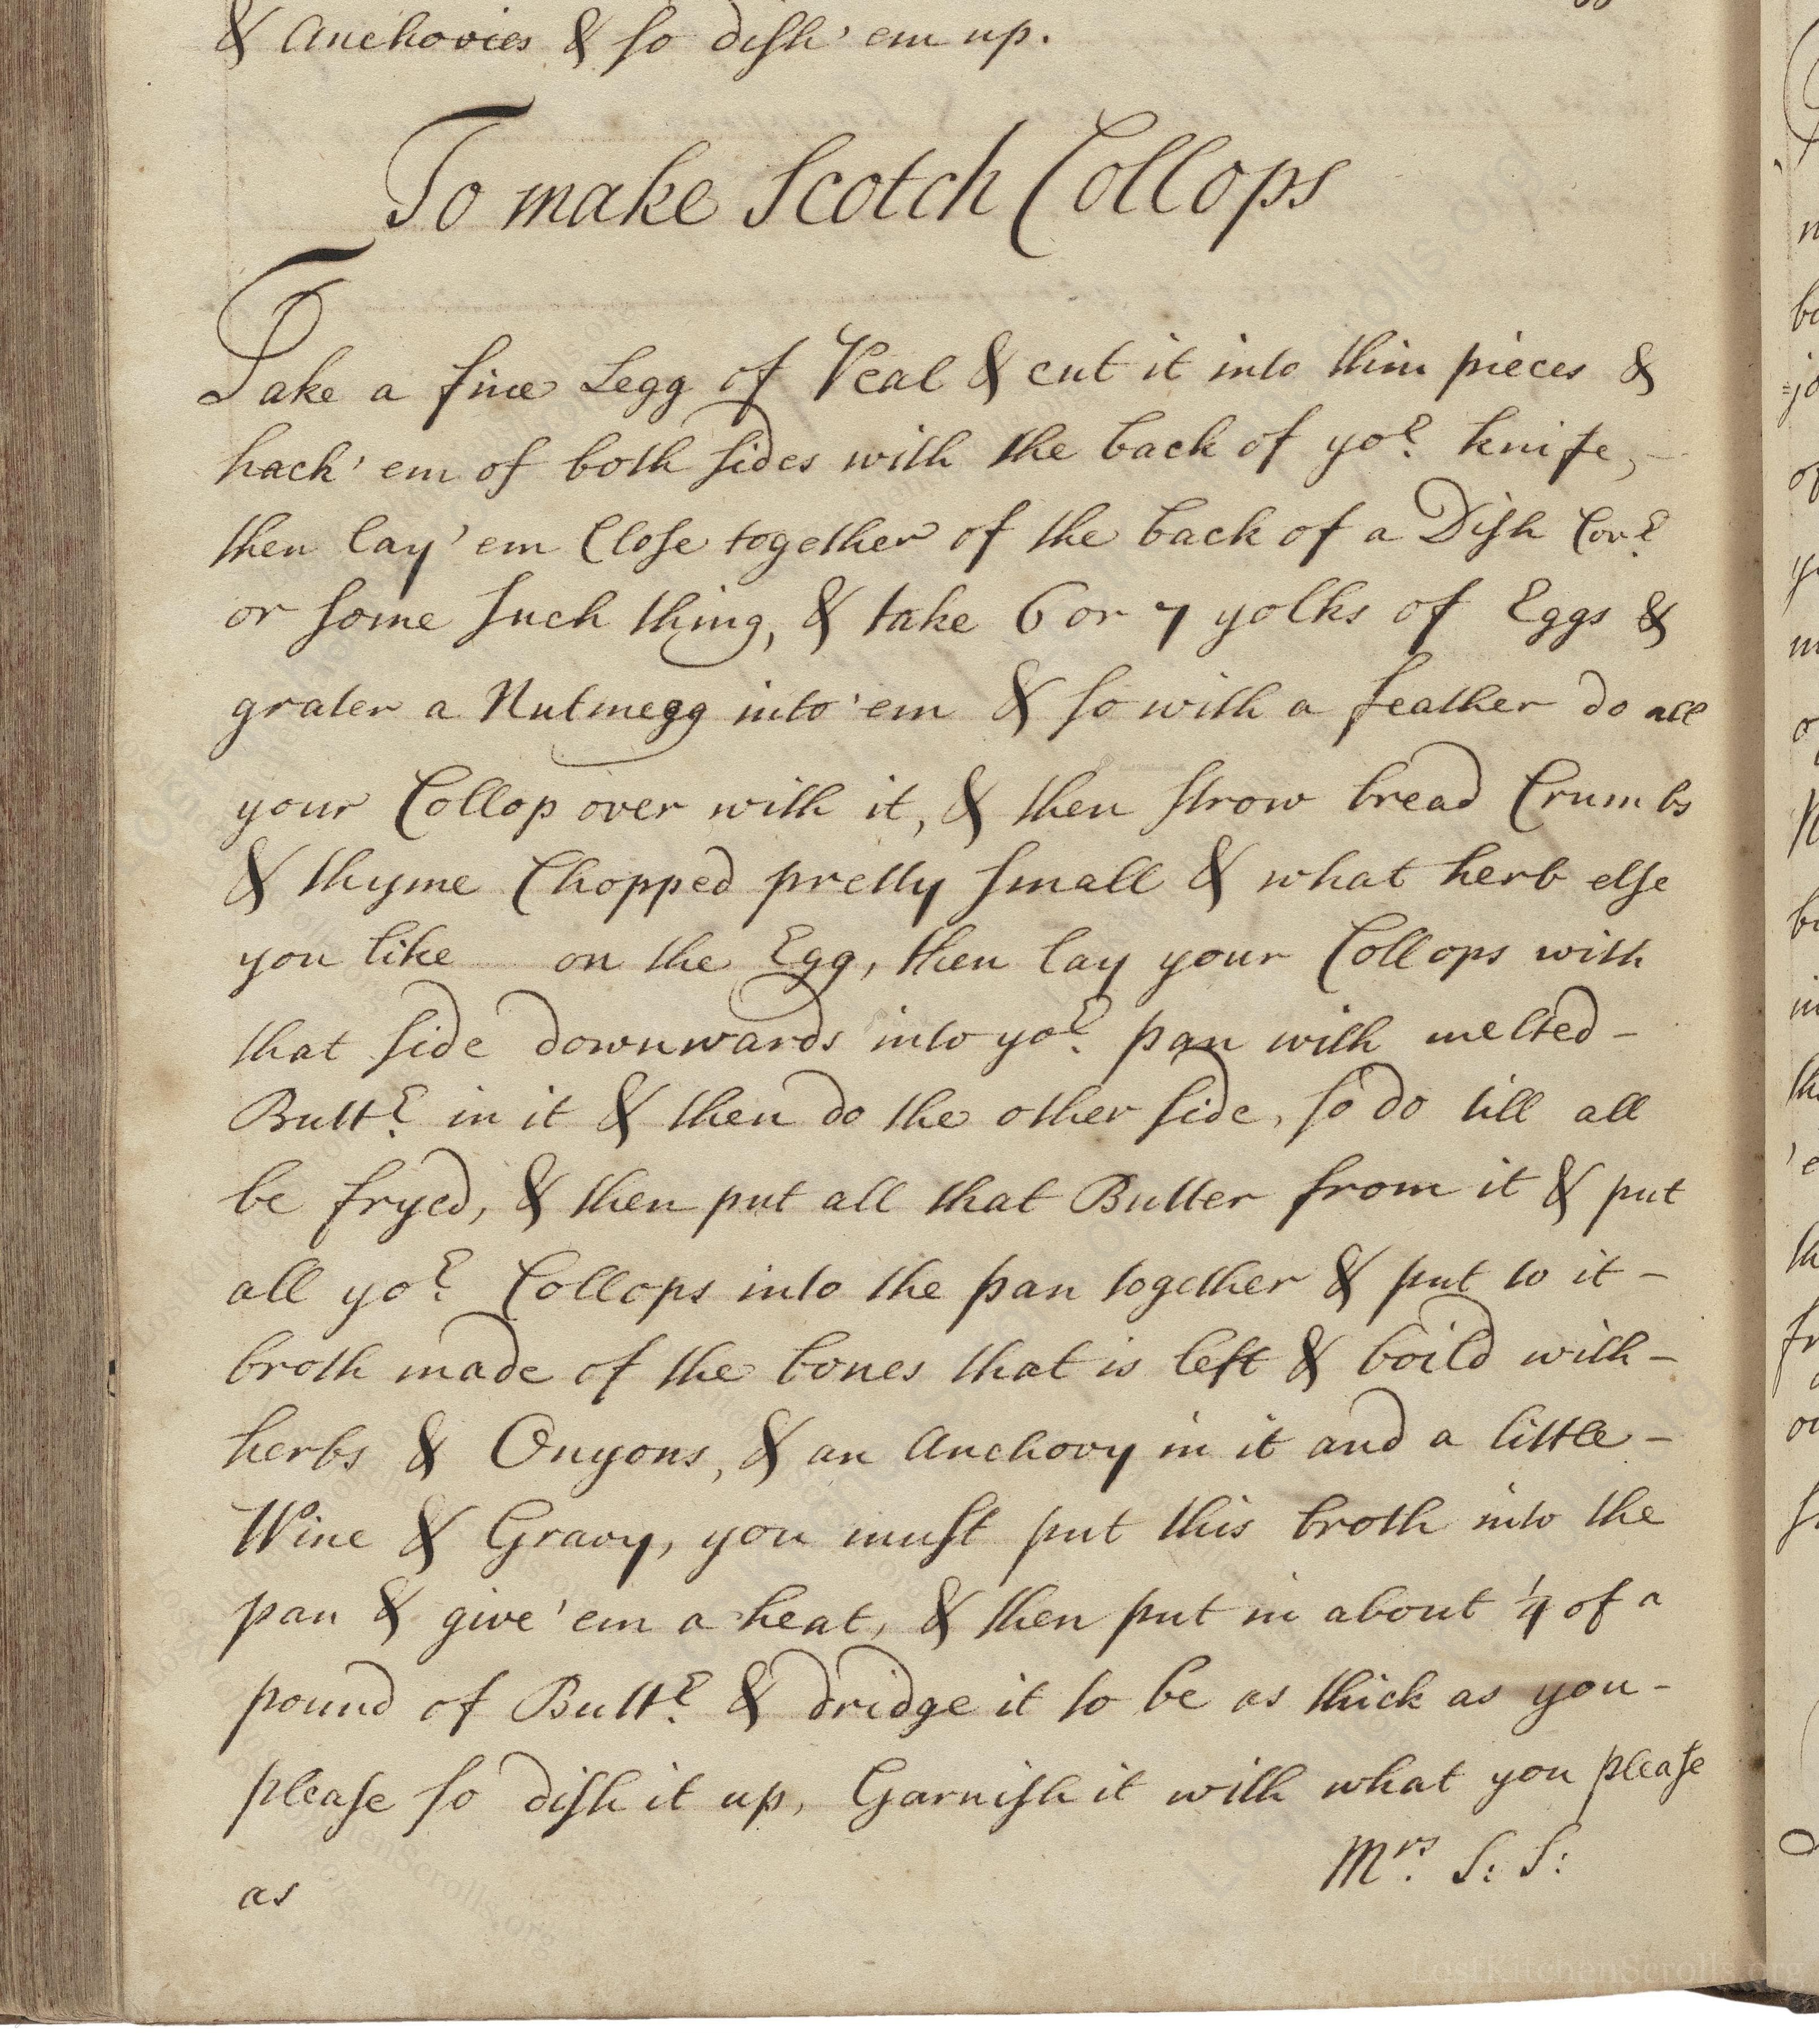 & Anchovies & so dish 'em up.
To make Scotch Collops
Take a fine Legg of Veal & cut it into thin pieces &
hack 'em of both sides with the back of yor. knife,
then lay 'em Close together of the back of a Dish Covr.
or some such thing, & take 6 or 7 yolks of Eggs &
grater a Nutmegg into 'em & so with a feather do all
your Collop over with it, & then strow bread Crumbs
& thyme Chopped pretty small & what herb else
you like on the Egg, then lay your Collops with
that side downwards into yor. pan with melted –
Buttr. in it & then do the other side, so do till all
be fryed, & then put all that Butter from it & put
all yor. Collops into the pan together & put to it –
broth made of the bones that is left & boild with –
herbs & Onyons, & an Anchovy in it and a little –
Wine & Gravy, you must put this broth into the
pan & give 'em a heat, & then put in about 1/4 of a
pound of Buttr. & dridge it to be as thick as you –
please so dish it up, Garnish it with what you please
Mrs. S: S:
as
LostKitchenScrolls.org